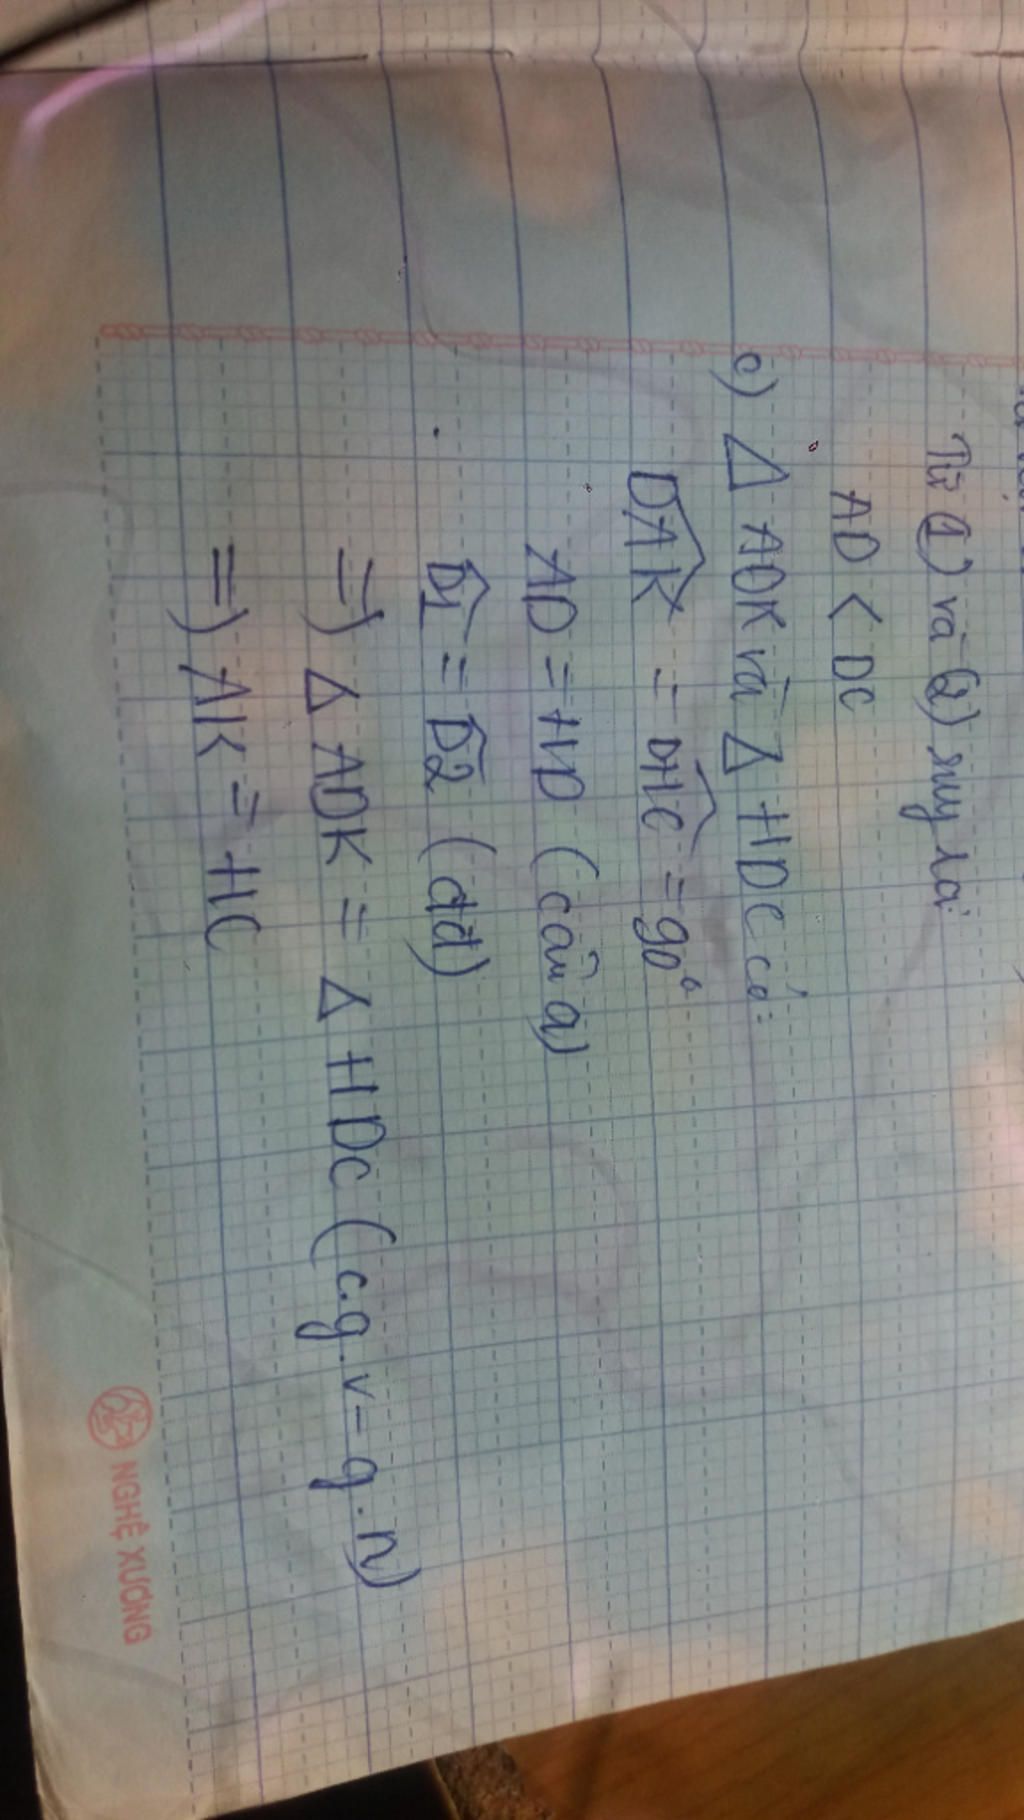 Từ (1) và (2) suy ra:
AD < DC
c) Δ ADK và Δ HDC có:
DAK = DHC = 90°
AD = HD (câu a)
D1 = D2 (đđ)
=) Δ ADK = Δ HDC (c.g.v - g.n)
=) AK = HC
NGHỆ XƯƠNG